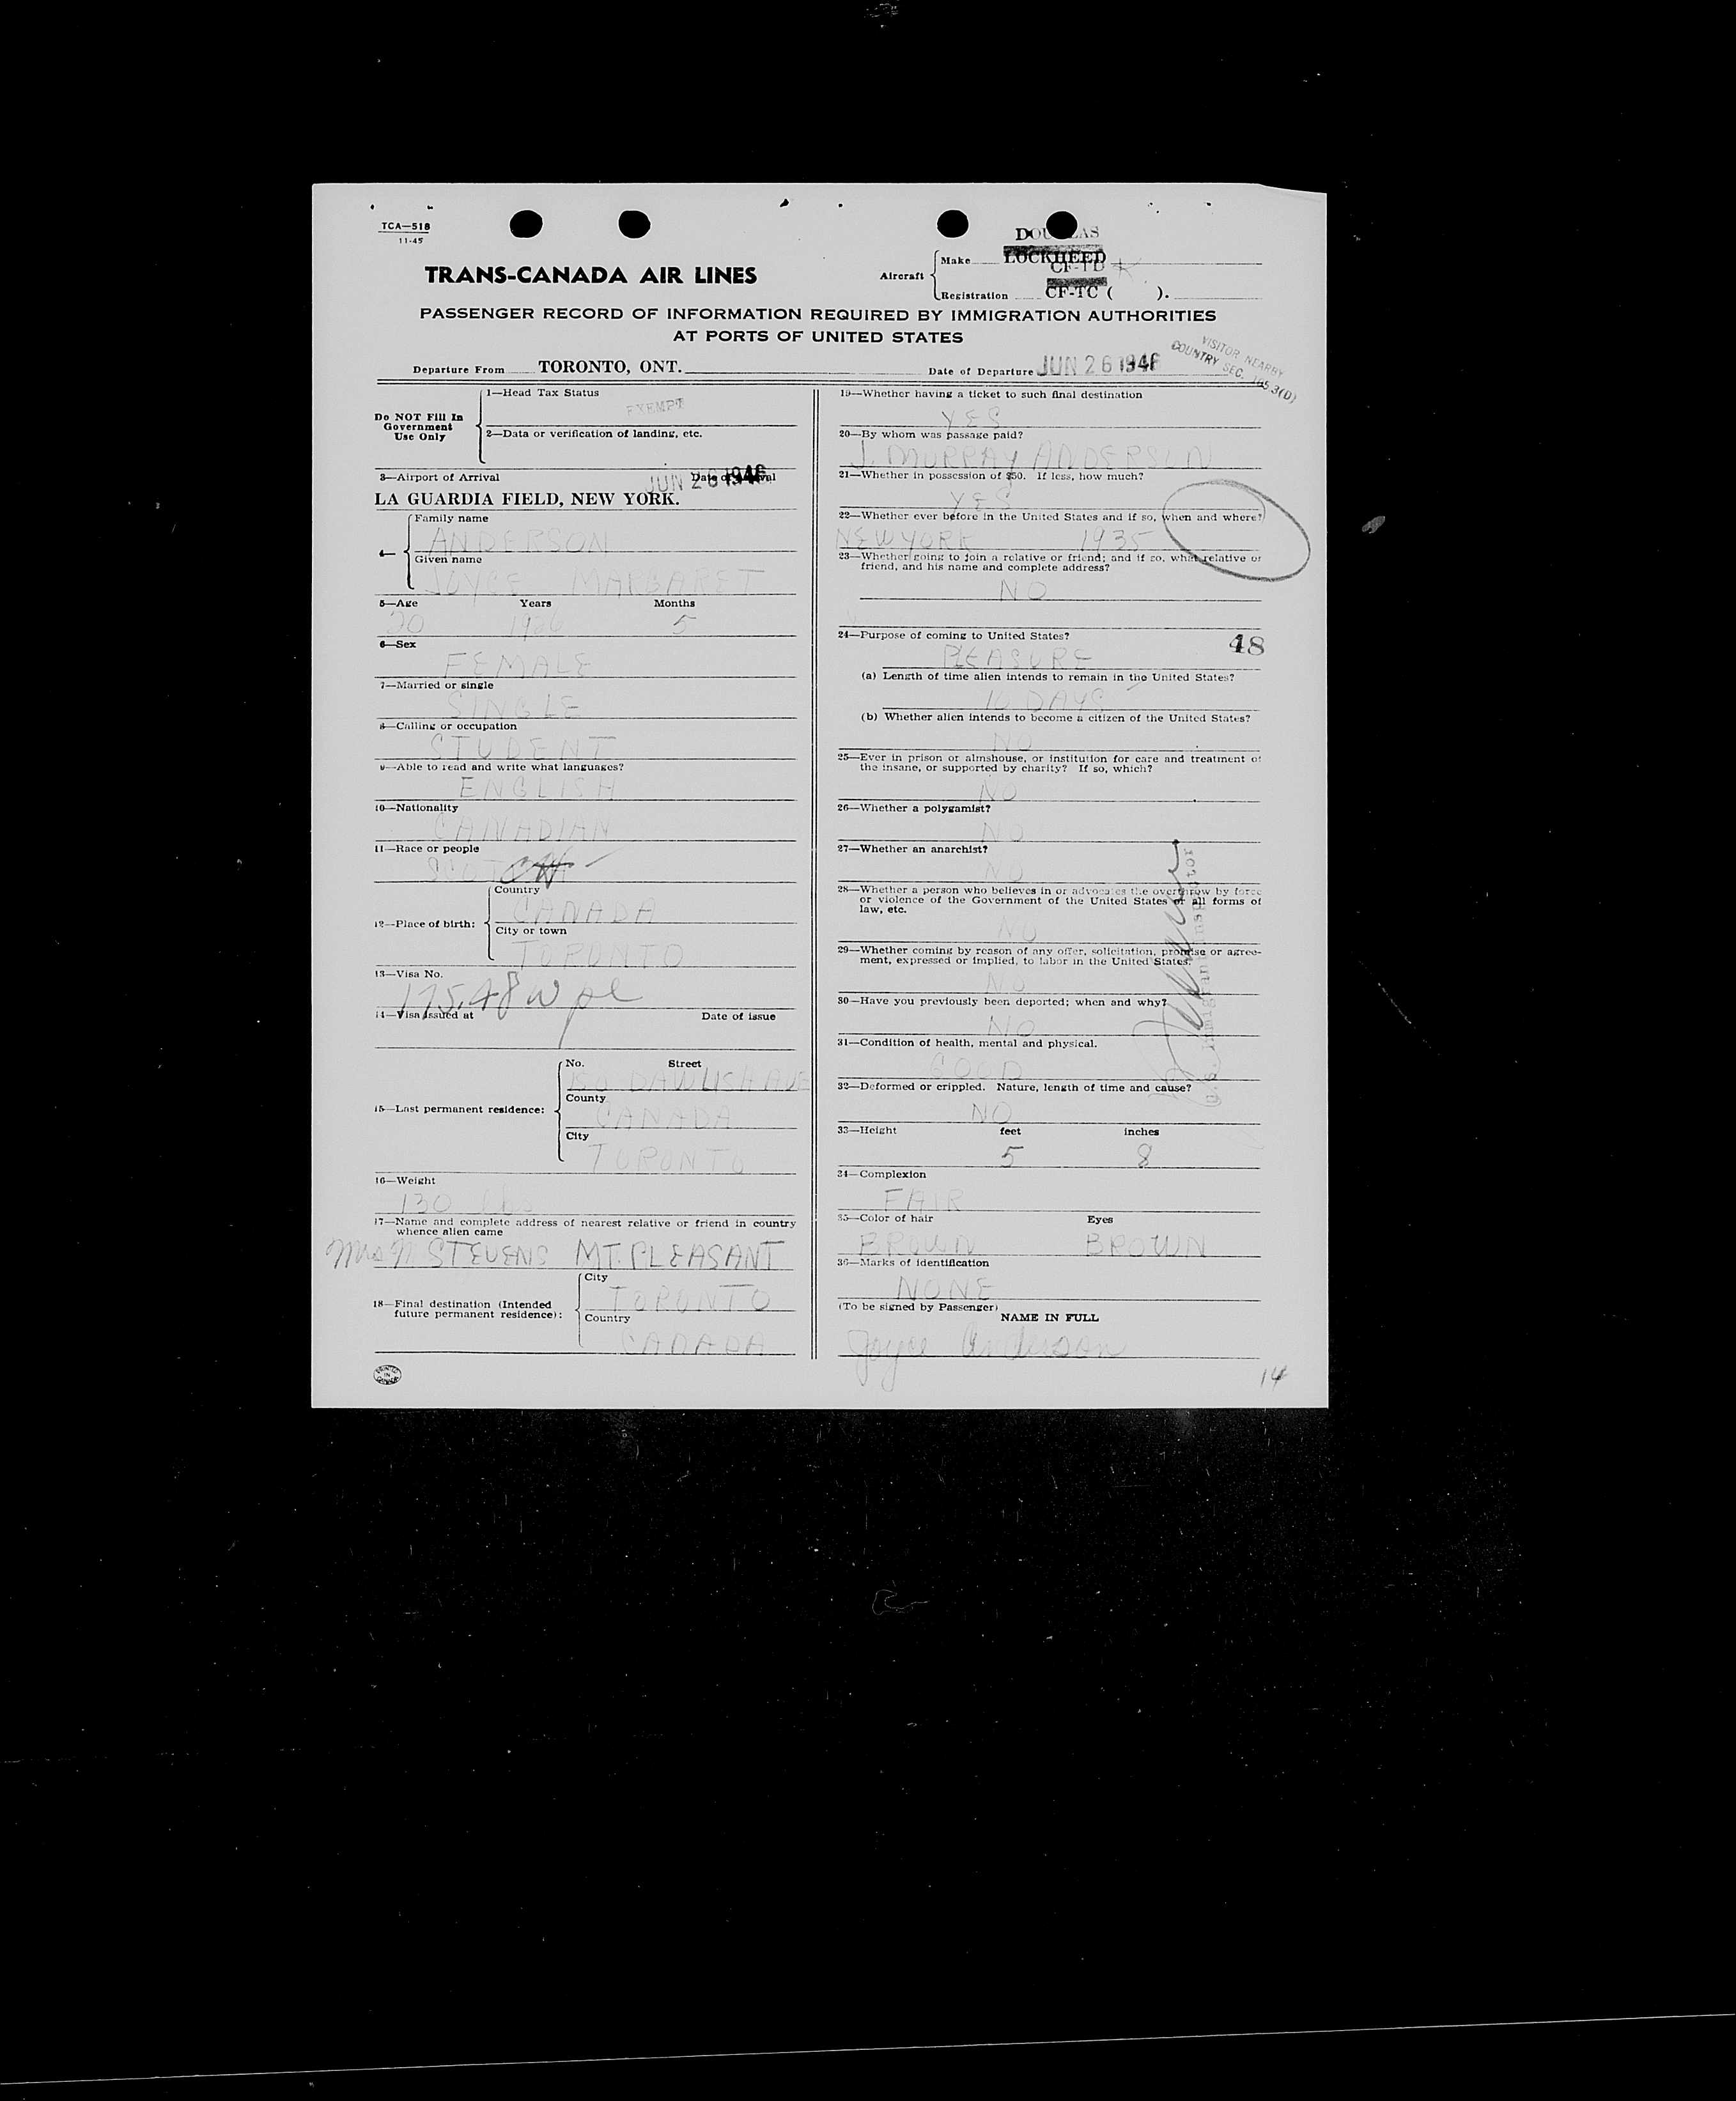 TCA—518
11-45
TRANS-CANADA AIR LINES
Aircraft
Make
DOUGLAS
LOCKHEED
CF-TD
Registration CF-TC ( ).
PASSENGER RECORD OF INFORMATION REQUIRED BY IMMIGRATION AUTHORITIES
AT PORTS OF UNITED STATES
VISITOR NEARBY
COUNTRY SEC. 165.3(D)
Departure From TORONTO, ONT.
Date of Departure JUN 26 1946
Do NOT Fill In
Government
Use Only
1—Head Tax Status
EXEMPT
2—Data or verification of landing, etc.
3—Airport of Arrival Date of Arrival
JUN 26 1946
LA GUARDIA FIELD, NEW YORK.
4—
Family name
ANDERSON
Given name
JOYCE MARGARET
5—Age Years Months
20 1926 5
6—Sex
FEMALE
7—Married or single
SINGLE
8—Calling or occupation
STUDENT
9—Able to read and write what languages?
ENGLISH
10—Nationality
CANADIAN
11—Race or people
SCOTCH
12—Place of birth:
Country
CANADA
City or town
TORONTO
13—Visa No.
175.48
14—Visa issued at Date of issue
15—Last permanent residence:
No. Street
DAWLISH AVE
County
CANADA
City
TORONTO
16—Weight
130 lbs
17—Name and complete address of nearest relative or friend in country
whence alien came
Mrs N STEVENS MT. PLEASANT
18—Final destination (Intended
future permanent residence):
City
TORONTO
Country
CANADA
PRINTED
IN
CANADA
19—Whether having a ticket to such final destination
YES
20—By whom was passage paid?
J. MURRAY ANDERSON
21—Whether in possession of $50. If less, how much?
YES
22—Whether ever before in the United States and if so, when and where?
NEW YORK 1935
23—Whether going to join a relative or friend; and if so, what relative or
friend, and his name and complete address?
NO
24—Purpose of coming to United States?
48
PLEASURE
(a) Length of time alien intends to remain in the United States?
10 DAYS
(b) Whether alien intends to become a citizen of the United States?
NO
25—Ever in prison or almshouse, or institution for care and treatment of
the insane, or supported by charity? If so, which?
NO
26—Whether a polygamist?
NO
27—Whether an anarchist?
NO
28—Whether a person who believes in or advocates the overthrow by force
or violence of the Government of the United States or all forms of
law, etc.
NO
29—Whether coming by reason of any offer, solicitation, promise or agree-
ment, expressed or implied, to labor in the United States.
NO
30—Have you previously been deported; when and why?
NO
31—Condition of health, mental and physical.
GOOD
32—Deformed or crippled. Nature, length of time and cause?
NO
33—Height feet inches
5 8
34—Complexion
FAIR
35—Color of hair Eyes
BROWN BROWN
36—Marks of identification
NONE
(To be signed by Passenger)
NAME IN FULL
Joyce Anderson
14
U.S. Immigrant Inspector